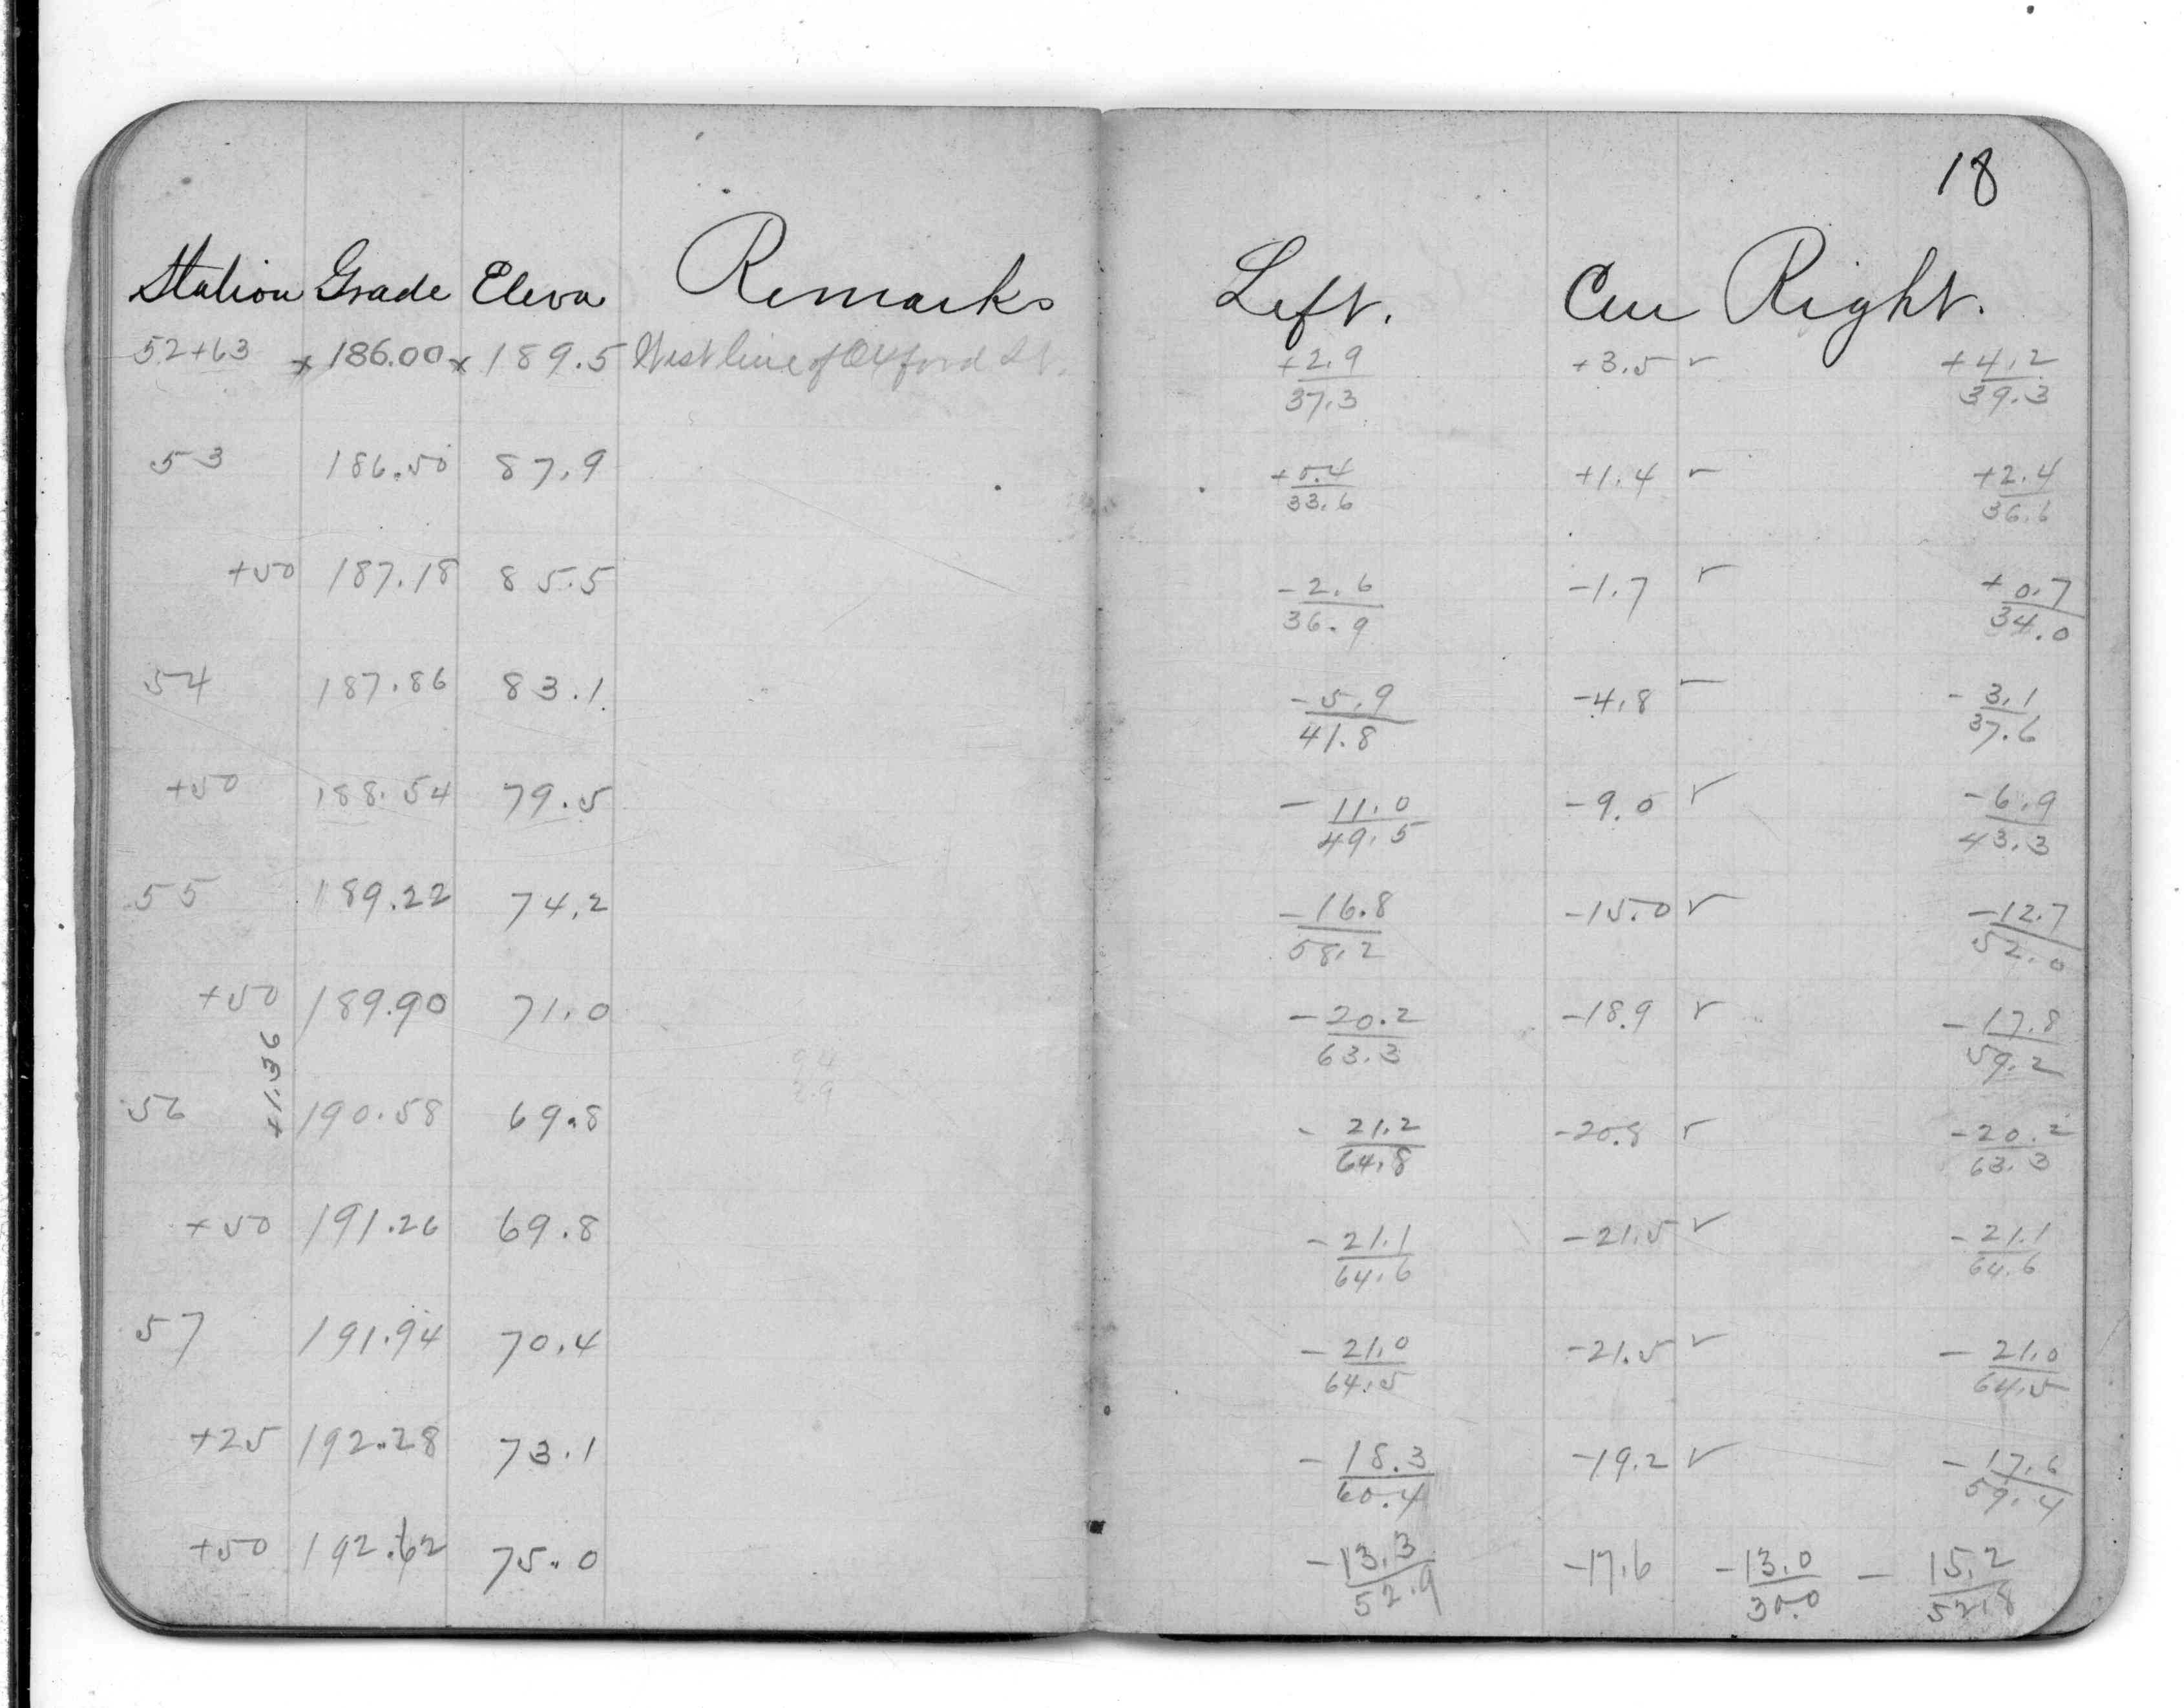 18
Station Grade Eleva Remarks Left. Cen Right.
52+63 x 186.00 x 189.5 West line of Oxford St. +2.9/37.3 +3.5 ✓ +4.2/39.3
53 186.50 87.9 +0.4/33.6 +1.4 ✓ +2.4/36.6
+50 187.18 85.5 -2.6/36.9 -1.7 ✓ +0.7/34.0
54 187.86 83.1 -5.9/41.8 -4.8 - -3.1/37.6
+50 188.54 79.5 -11.0/49.5 -9.0 ✓ -6.9/43.3
55 189.22 74.2 -16.8/58.2 -15.0 ✓ -12.7/52.0
+50 189.90 71.0 -20.2/63.3 -18.9 ✓ -17.8/59.2
+1.36
56 190.58 69.8 -21.2/64.8 -20.8 ✓ -20.2/63.3
+50 191.26 69.8 -21.1/64.6 -21.5 ✓ -21.1/64.6
57 191.94 70.4 -21.0/64.5 -21.5 ✓ -21.0/64.5
+25 192.28 73.1 -18.3/60.4 -19.2 ✓ -17.6/59.4
+50 192.62 75.0 -13.3/52.9 -17.6 -13.0/30.0 -15.2/52.8